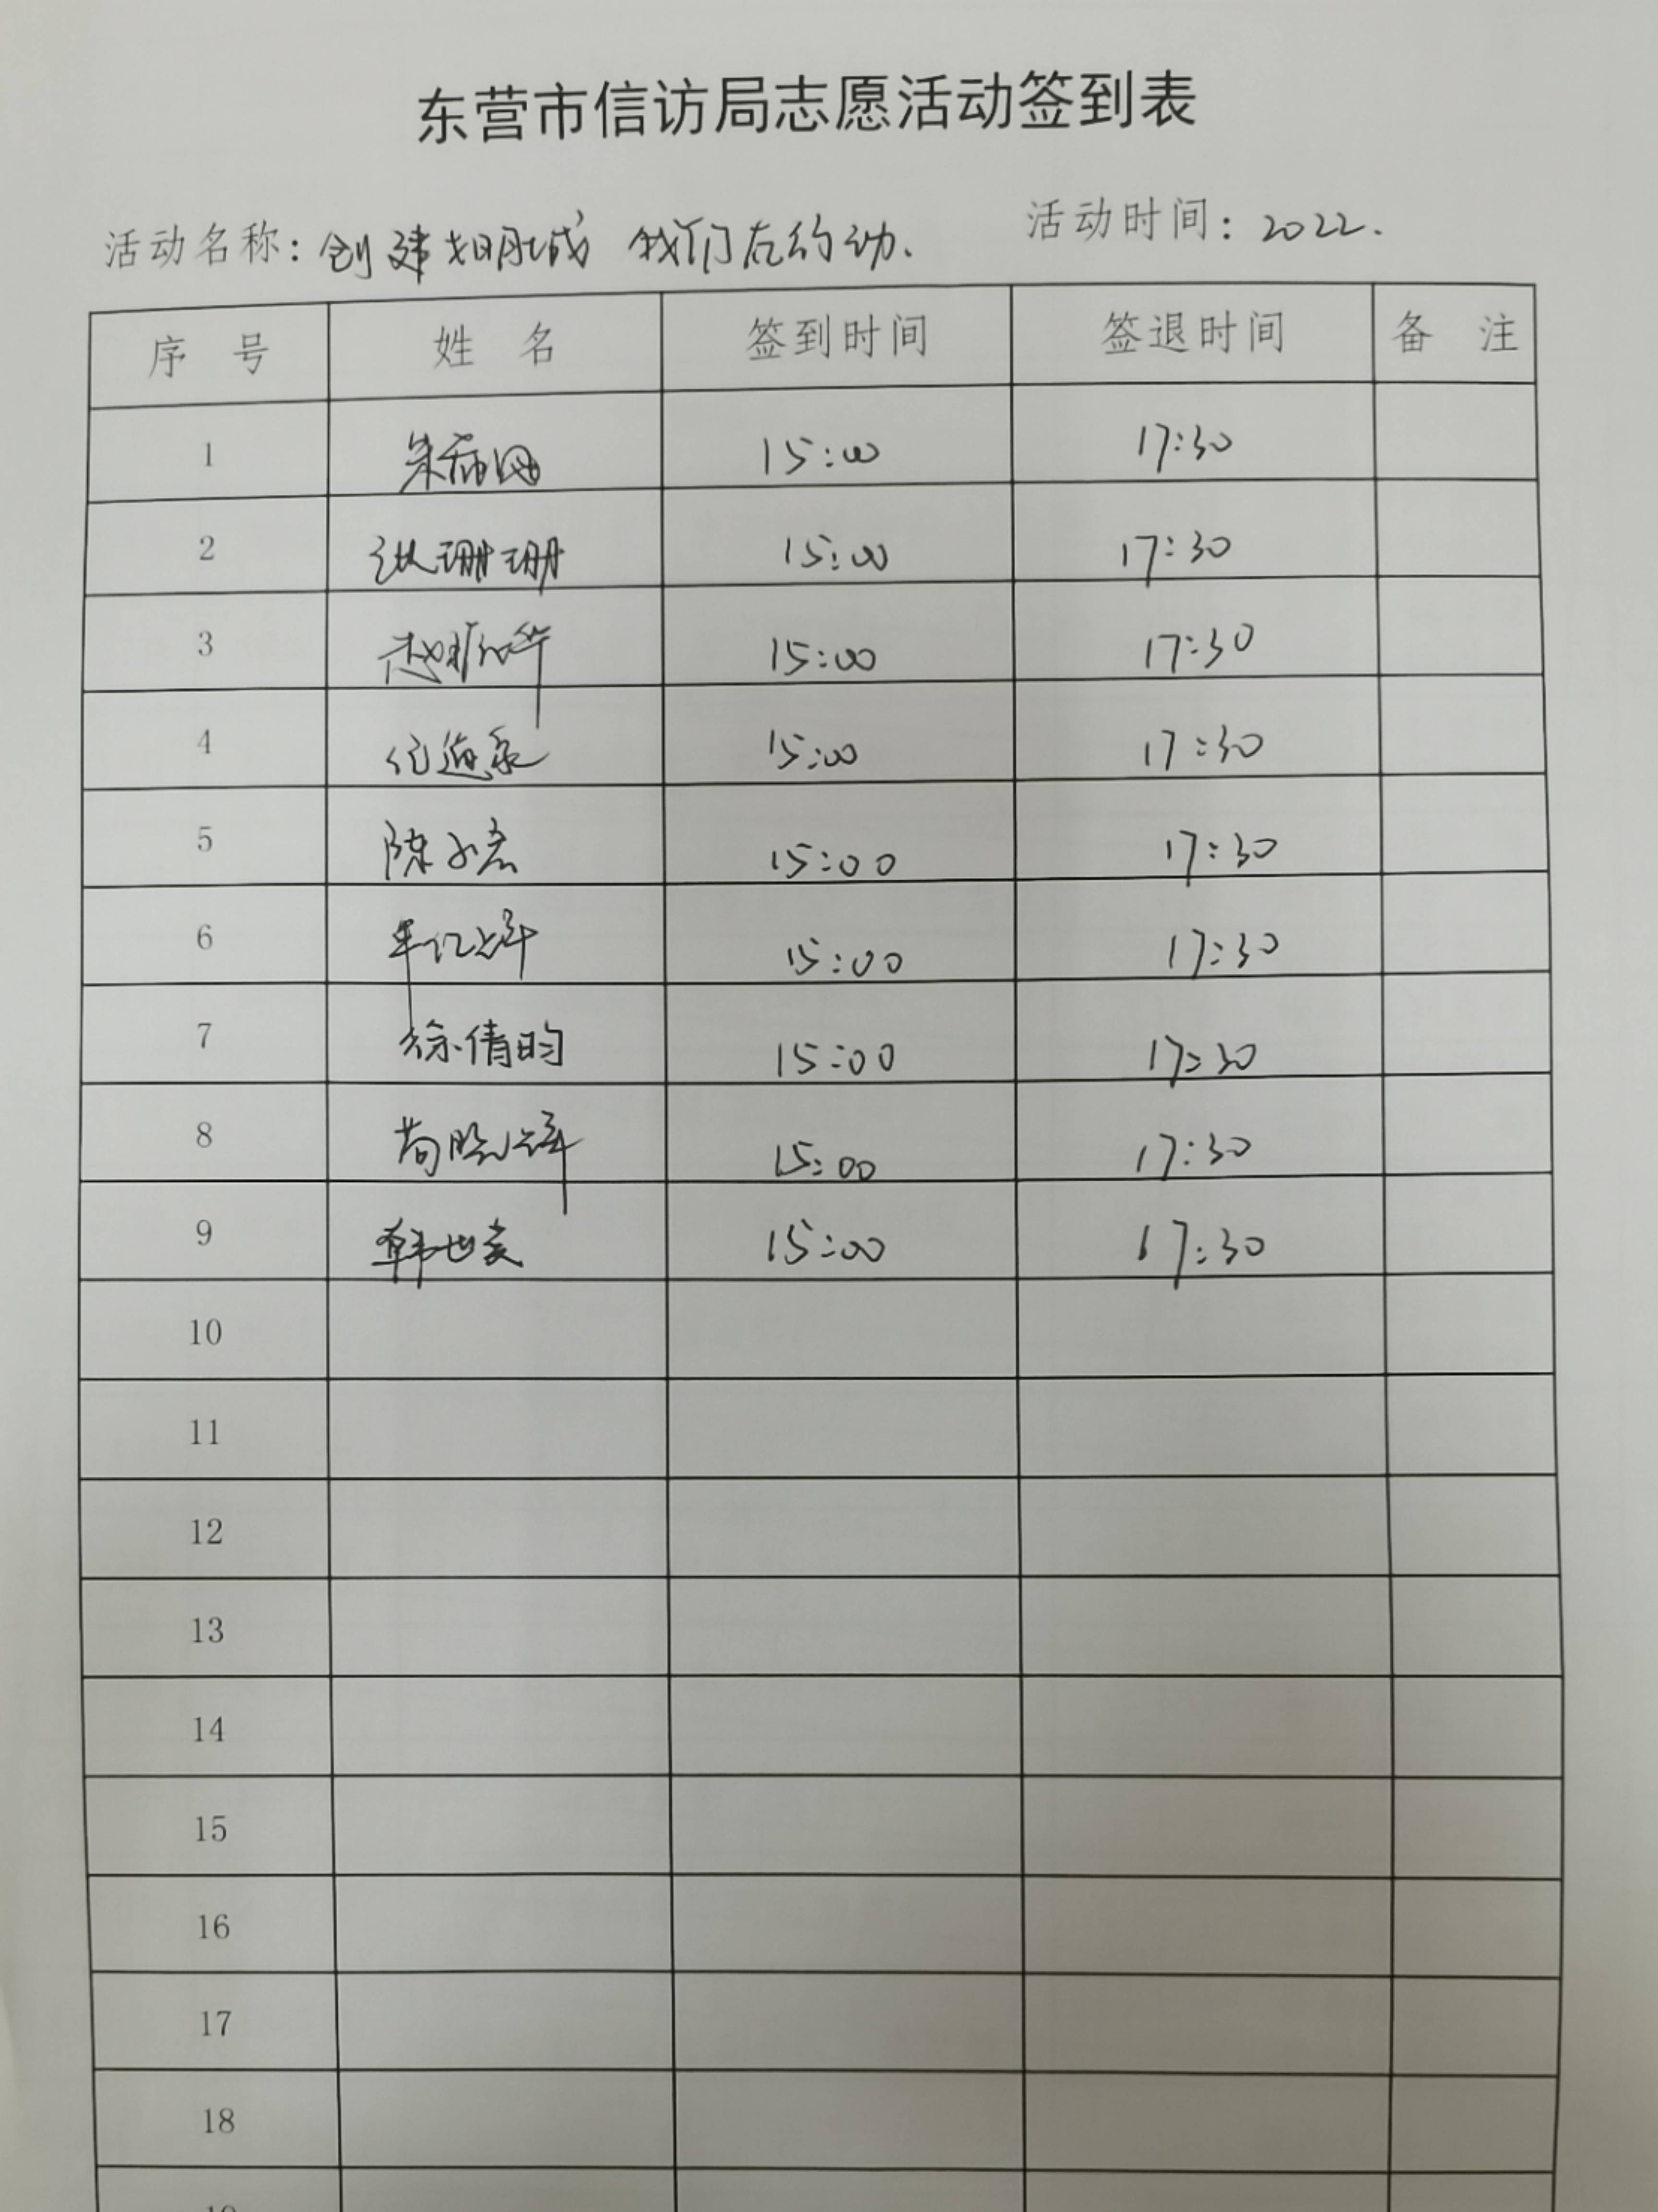 东营市信访局志愿活动签到表
活动名称：创建文明城 我们在行动. 活动时间：2022.
序号 姓名 签到时间 签退时间 备注
1 15:00 17:30
2 珊珊 15:00 17:30
3 赵 华 15:00 17:30
4 15:00 17:30
5 陈 15:00 17:30
6 15:00 17:30
7 徐倩昀 15:00 17:30
8 15:00 17:30
9 韩世 15:00 17:30
10
11
12
13
14
15
16
17
18